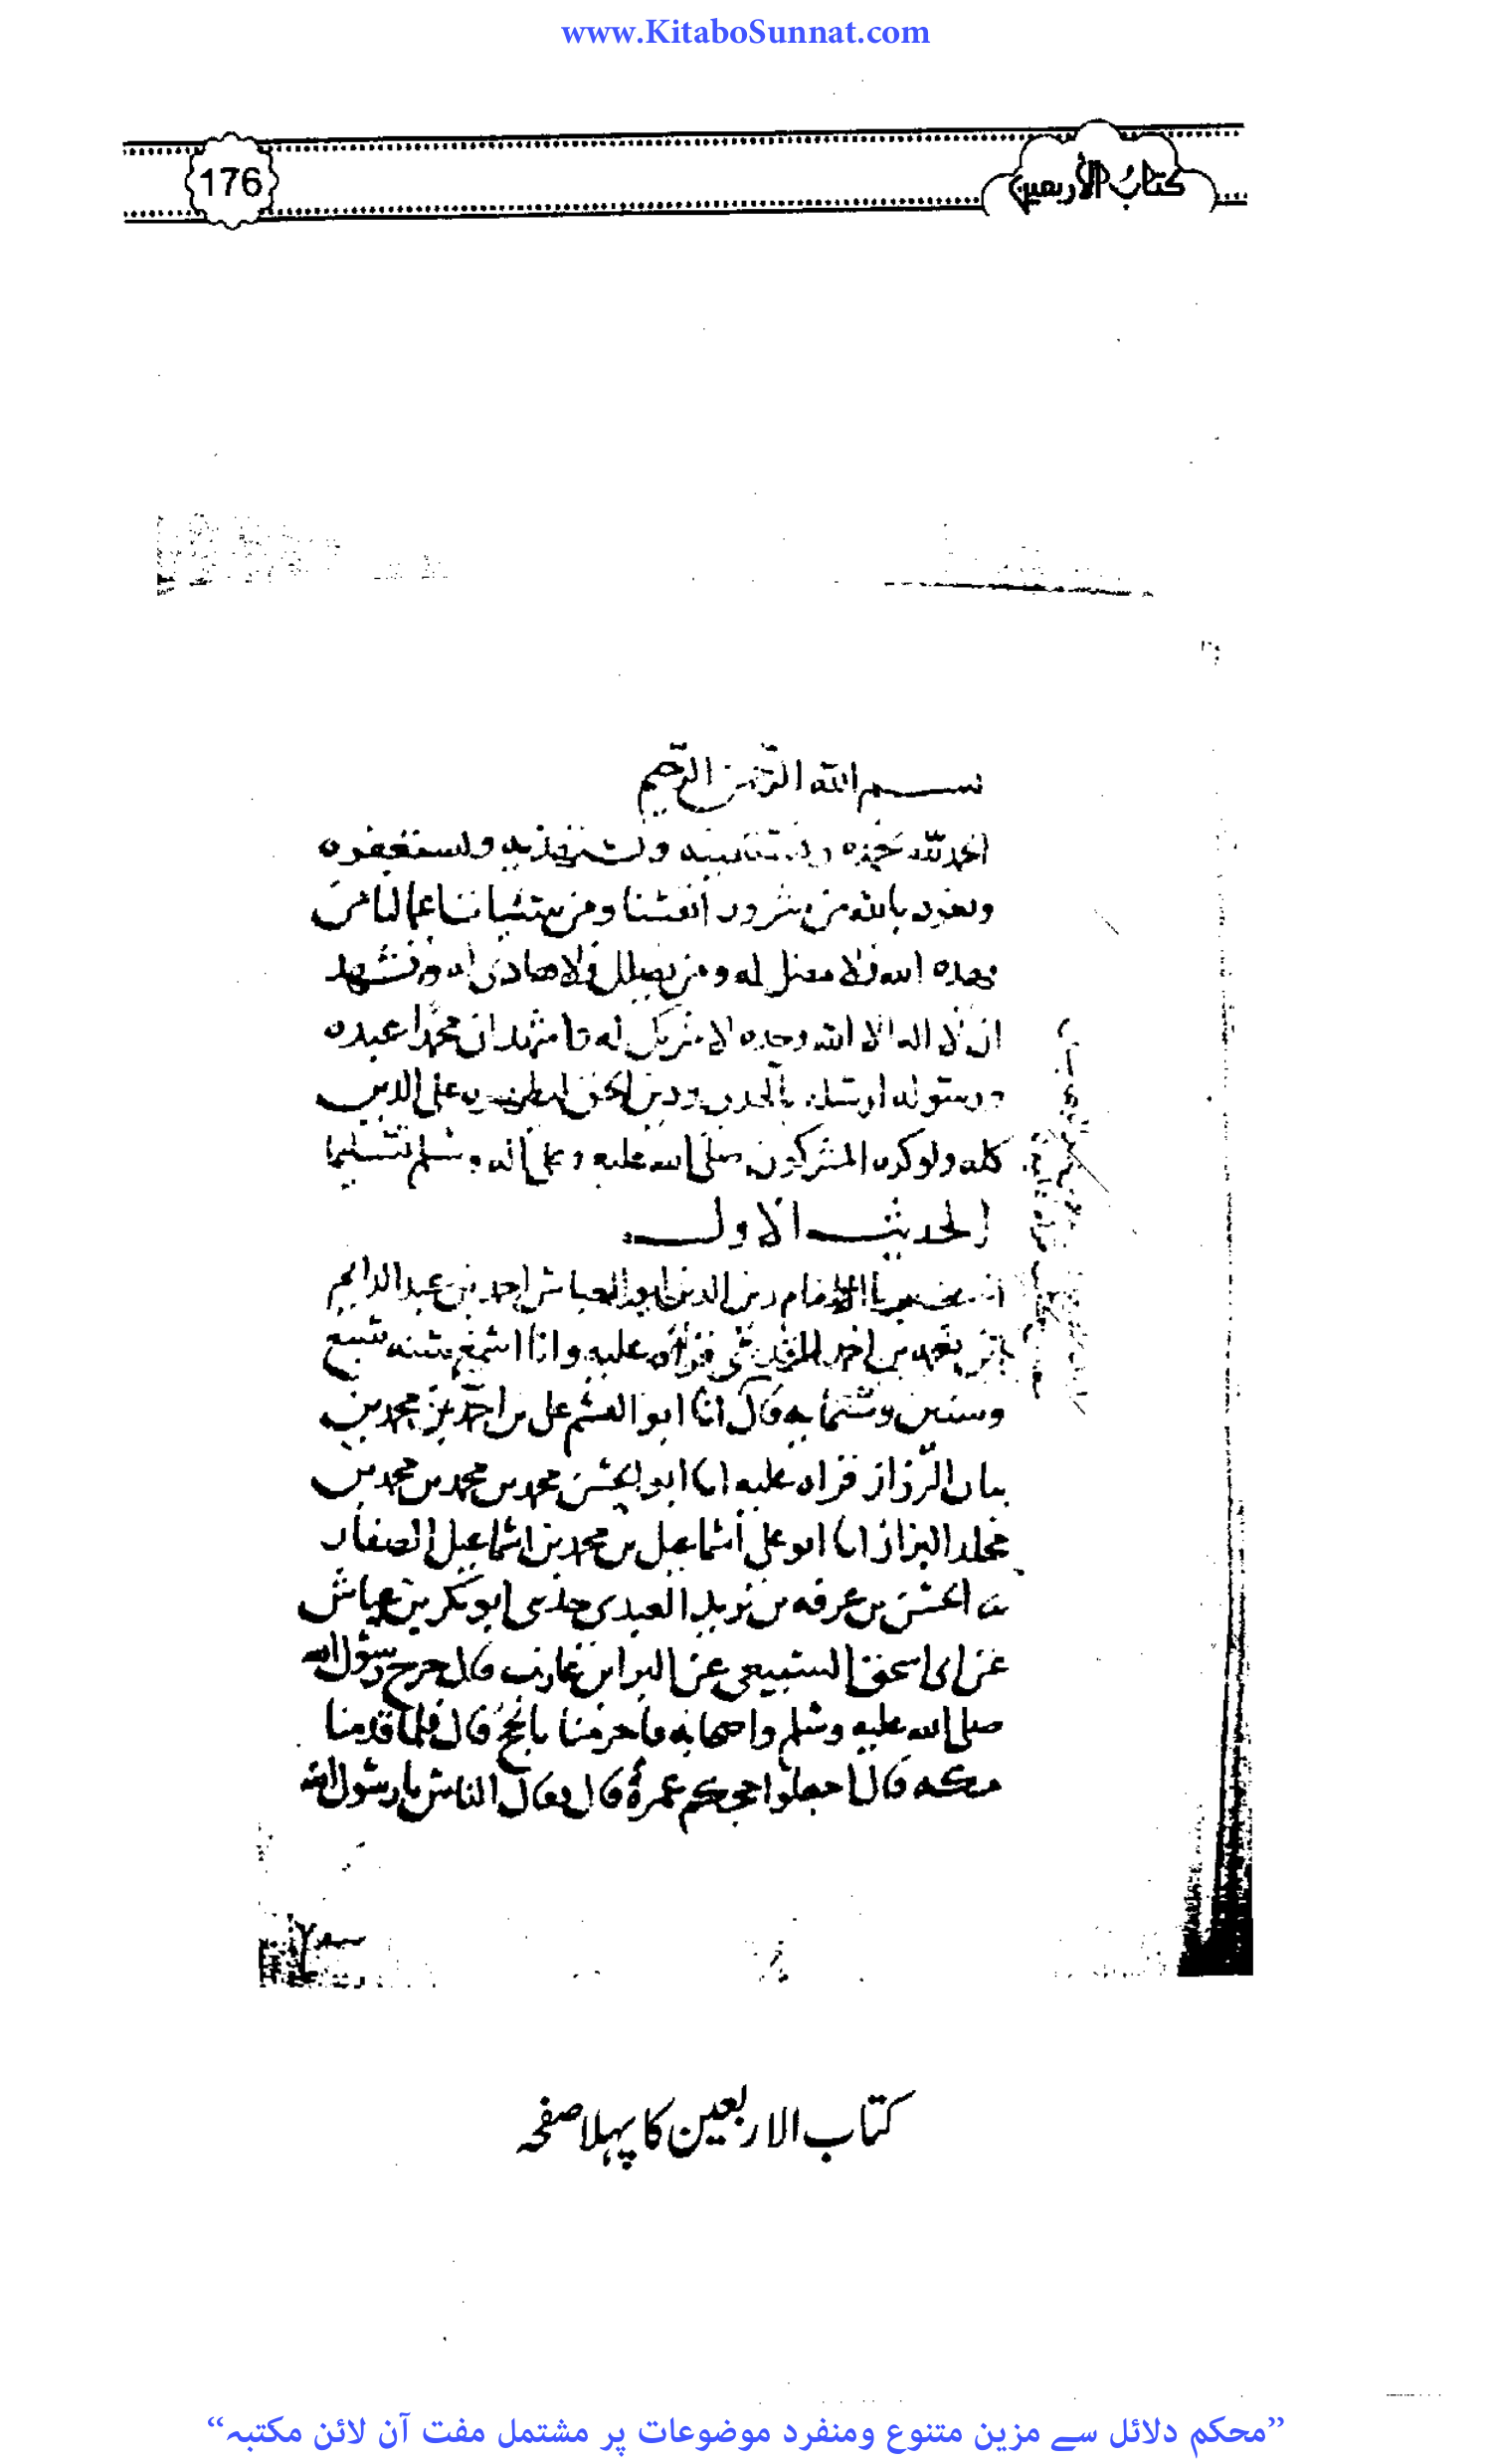 www.KitaboSunnat.com
كتاب الأربعين
176
بسم الله الرحمن الرحيم
الحمد لله نحمده ونستعينه ونستهديه ونستغفره
ونعوذ بالله من شرور انفسنا ومن سيئات اعمالنا من
يهده الله فلا مضل له ومن يضلل فلا هادى له ونشهد
ان لا اله الا الله وحده لا شريك له ونشهد ان محمدا عبده
ورسوله ارسله بالهدى ودين الحق ليظهره على الدين
كله ولو كره المشركون صلى الله عليه وعلى اله وسلم تسليما
الحديث الاول
الامام زين الدين ابو العباس احمد بن عبد الدايم
بن نعمه بن احمد المقدسى قراة عليه وانا اسمع سنه سبع
وستين وستمايه قال انا ابو القسم على بن احمد بن محمد بن
بيان الرزاز قراه عليه انا ابو الحسن محمد بن محمد بن محمد بن
مخلد البزاز انا ابو على اسماعيل بن محمد بن اسماعيل الصفار
ثنا الحسن بن عرفه بن يزيد العبدى حدثنى ابو بكر بن عياش
عن ابى اسحق السبيعى عن البرا بن عازب قال خرج رسول الله
صلى الله عليه وسلم واصحابه فاحرمنا بالحج قال فلما قدمنا
مكه قال اجعلوا حجكم عمرة قال فقال الناس يا رسول الله
کتاب الاربعین کا پہلا صفحہ
”محکم دلائل سے مزین متنوع ومنفرد موضوعات پر مشتمل مفت آن لائن مکتبہ“